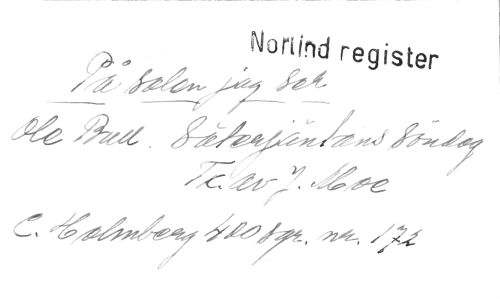 Norlind register
På solen jag ser
Ole Bull. Säterjäntans Söndag
Tc. av J. Moe
C. Holmberg 400 sgr. nr. 172